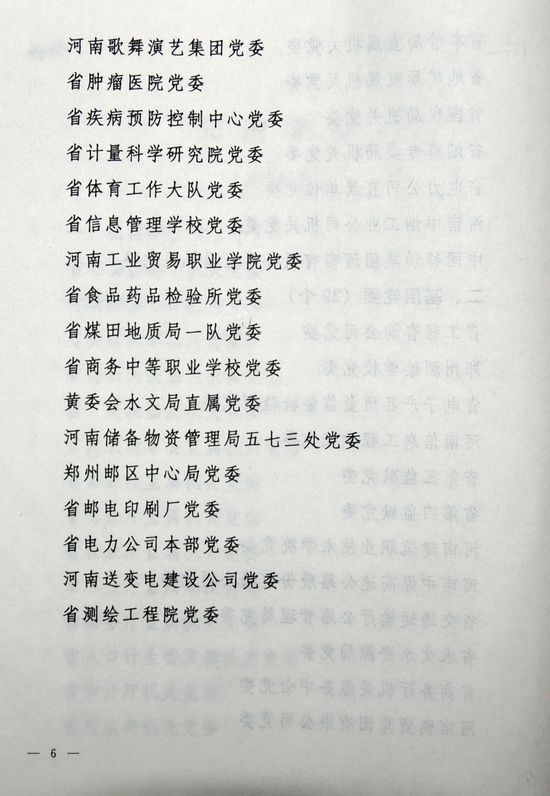 河南歌舞演艺集团党委
省肿瘤医院党委
省疾病预防控制中心党委
省计量科学研究院党委
省体育工作大队党委
省信息管理学校党委
河南工业贸易职业学院党委
省食品药品检验所党委
省煤田地质局一队党委
省商务中等职业学校党委
黄委会水文局直属党委
河南储备物资管理局五七三处党委
郑州邮区中心局党委
省邮电印刷厂党委
省电力公司本部党委
河南送变电建设公司党委
省测绘工程院党委
— 6 —